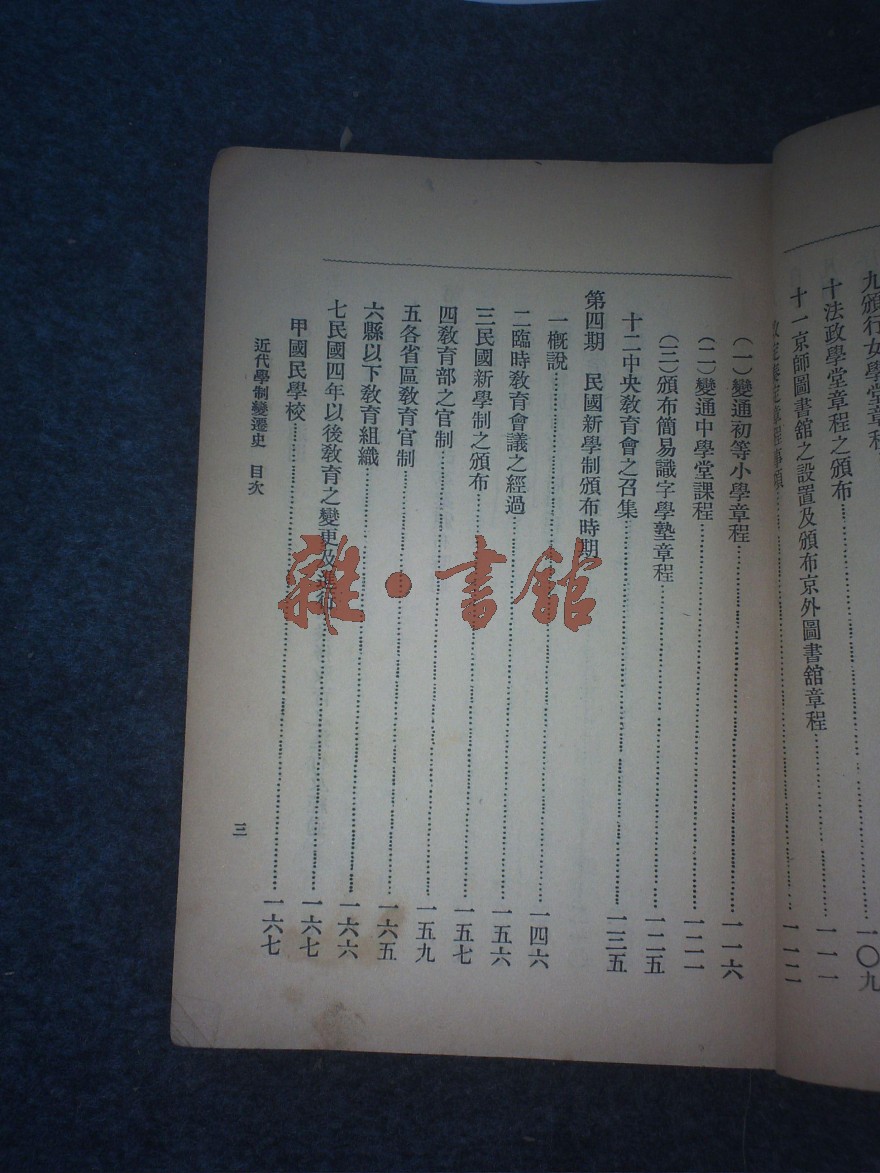 九頒行女學堂章程
十法政學堂章程之頒布……一〇九
十一京師圖書館之設置及頒布京外圖書館章程……一一一
……一一二
(一)變通初等小學章程……一一六
(二)變通中學堂課程……一二一
(三)頒布簡易識字學塾章程……一二五
十二中央教育會之召集……一三五
第四期 民國新學制頒布時期
一概說……一四六
二臨時教育會議之經過……一五六
三民國新學制之頒布……一五七
四教育部之官制……一五九
五各省區教育官制……一六五
六縣以下教育組織……一六六
七民國四年以後教育之變更及進行……一六七
甲國民學校……一六七
近代學制變遷史 目次
三
雜·書館